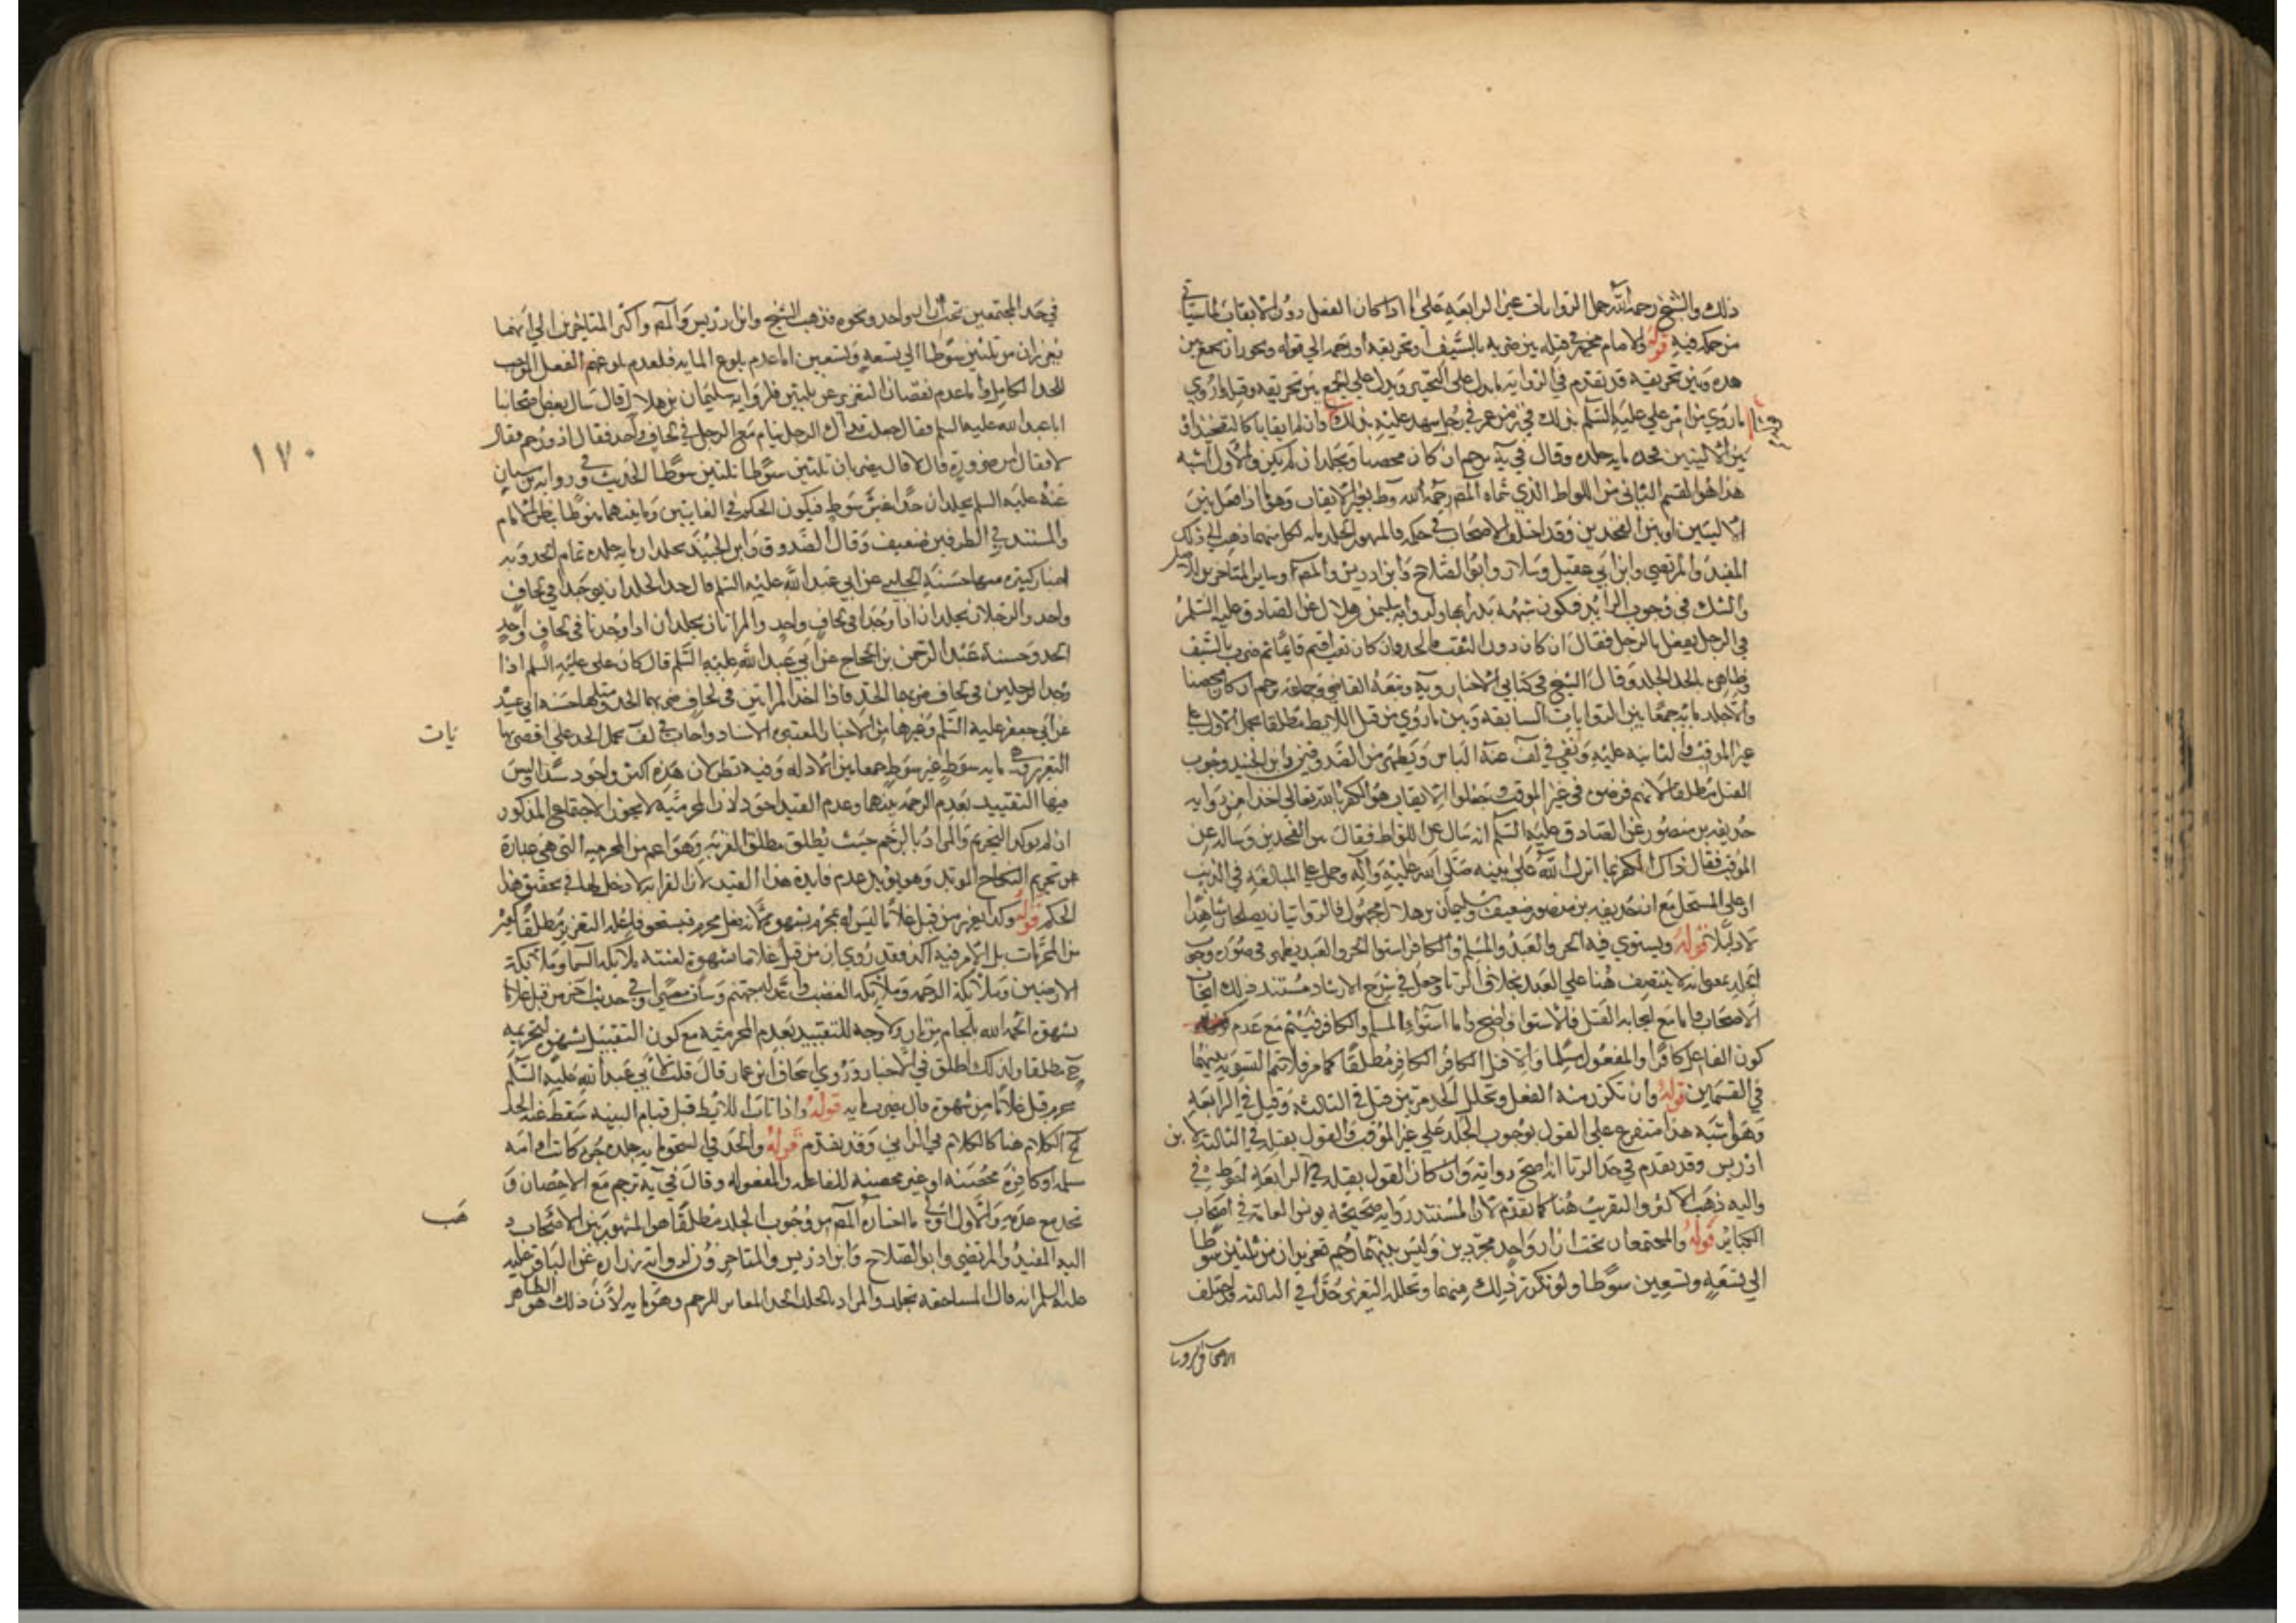 ذلك والشيخ رحمه الله حمل الروايات غير الرابعة على ما اذا كان الفعل دون الايقاب لما سياتي
من حكمه فيه قوله والامام مخير في قتله بين ضربه بالسيف او تحريقه او رجمه الى قوله ويجوز ان يجمع بين
هذه وبين تحريقه قد تقدم في الرواية ما يدل على التخيير ويدل على الجمع بين تحريقه وقتله ما روي
ما روي من امر علي عليه السلم بذلك في زمن عمر في رجل شهد عليه بذلك قوله وان لم يكن ايقابا كالتفخيذ او
بين الاليتين فحده مايه جلده وقال في يه يرجم ان كان محصنا ويجلد ان لم يكن والاول اشبه
هذا هو القسم الثاني من اللواط الذي سماه المصه رحمه الله وطء بغير الايقاب وهو اذا فعل بين
الاليتين او بين الفخذين وقد اختلف الاصحاب في حكمه فالمشهور الجلد مايه لكل منهما ذهب الى ذلك
المفيد والمرتضى وابن ابي عقيل وسلار وابو الصلاح وابن ادريس والمصه وساير المتاخرين للاصل
والشك في وجوب الزايد فيكون شبهة يدرا بها ولرواية سليمن بن هلال عن الصادق عليه السلم
في الرجل يفعل بالرجل فقال ان كان دون الثقب فالحد وان كان ثقب اقيم قايما ثم ضرب بالسيف
وظاهره بالحد الجلد وقال الشيخ في كتابي الاخبار ويه وتبعه القاضي وجماعة يرجم ان كان محصنا
والا جلد مايه جمعا بين الروايات السابقه وبين ما روي من قتل اللايط مطلقا بحمل الاول على
غير الموقب والثانيه عليه ونفى في لف عنه الباس ويظهر من الصدوقين وابن الجنيد وجوب
القتل مطلقا لانهم فرضوه في غير الموقب وجعلوا الايقاب هو الكفر بالله تعالى اخذا من رواية
حذيفه بن منصور عن الصادق عليه السلم انه سال عن اللواط فقال بين الفخذين وساله عن
الموقب فقال ذاك الكفر بما انزل الله على نبيه صلى الله عليه وآله وحمل على المبالغه في الذنب
او على المستحل مع ان حذيفه بن منصور ضعيف وسليمان بن هلال مجهول فالروايتان يصلحان شاهدا
لا دليلا قوله ويستوي فيه الحر والعبد والمسلم والكافر استوا الحر والعبد يظهر في صورة وجوب
الجلد بمعنى انه لا ينتصف هنا على العبد بخلاف الزنا وجعل في شرح الارشاد مستند ذلك ايجاب
الاصحاب واما مع ايجابه القتل فالاستوا واضح واما استواء المسلم والكافر فيتم مع عدم
كون الفاعل كافرا والمفعول مسلما والا قتل الكافر مطلقا كما مر فلا تتم التسويه بينهما
في القسمين قوله وان تكرر منه الفعل وتخلل الحد مرتين قتل في الثالثه وقيل في الرابعه
وهو اشبه هذا متفرع على القول بوجوب الجلد على غير الموقب فالقول بقتله في الثالثه لابن
ادريس وقد تقدم في حد الزنا انه اصح رواية وان كان القول بقتله في الرابعه احوط في
واليه ذهب الاكثر والتقريب هنا كما تقدم لان المستند رواية صحيحة يونس العامة في اصحاب
الكباير قوله والمجتمعان تحت ازار واحد مجردين وليس بينهما رحم يعزران من ثلثين سوطا
الى تسعه وتسعين سوطا ولو تكرر ذلك منهما وتخلله التعزير حدا في الثالثه قد اختلف
الاصحاب والروايات
في حد المجتمعين تحت ازار واحد ونحوه فذهب الشيخ وابن ادريس والمصه واكثر المتاخرين الى انهما
يعزران من ثلثين سوطا الى تسعه وتسعين اما عدم بلوغ المايه فلعدم بلوغهم الفعل الموجب
للحد الكامل واما عدم نقصان التعزير عن ثلثين فلرواية سليمان بن هلال قال سال بعض اصحابنا
ابا عبد الله عليه السلم فقال جعلت فداك الرجل ينام مع الرجل في لحاف واحد فقال اذو رحم فقال
لا فقال من ضرورة قال لا قال يضربان ثلثين سوطا ثلثين سوطا الحديث وفي رواية بن سنان
عنه عليه السلم يجلدان حدا غير سوط فيكون الحكم في الغايتين وما بينهما منوطا بنظر الامام
والمستند في الطرفين ضعيف وقال الصدوق وابن الجنيد يجلدان مايه جلده تمام الحد وبه
اخبار كثيره منها حسنة الحلبي عن ابي عبد الله عليه السلم قال حد الجلد ان يوجدا في لحاف
واحد والرجلان يجلدان اذا وجدا في لحاف واحد والمراتان يجلدان اذا وجدتا في لحاف واحد
الحد وحسنة عبد الرحمن بن الحجاج عن ابي عبد الله عليه السلم قال كان علي عليه السلم اذا
وجد الرجلين في لحاف ضربهما الحد فاذا اخذ المراتين في لحاف ضربهما الحد ومثلها حسنة ابي عبيده
عن ابي جعفر عليه السلم وغيرها من الاخبار المعتبره الاسناد واجاب في لف بحمل الحد على اقصى نهايات
التعزير وهي مايه سوط غير سوط جمعا بين الادله وفيه نظر لان هذه اكثر واجود سندا وليس
فيها التقييد بعدم الرحم بينهما وعدم القيد اجود لان المحرميه لا تجوز الاجتماع المذكور
ان لم يوكد التحريم والمراد بالرحم حيث يطلق مطلق القرابه وهو اعم من المحرميه التي هي عبارة
عن تحريم النكاح الموبد وهو يويد عدم فايدة هذا القيد لان القرابه لا دخل لها في تحقيق هذا
الحكم قوله وكذا يعزر من قبل غلاما ليس له بمحرم بشهوه لانه فعل محرم فيستحق فاعله التعزير مطلقا كغيره
من المحرمات بل الامر فيه اكد فقد روي ان من قبل غلاما بشهوة لعنته ملائكة السما وملائكة
الارضين وملائكة الرحمه وملائكة الغضب واعد له جهنم وسات مصيرا وفي حديث اخر من قبل غلاما
بشهوه الجمه الله بلجام من نار ولا وجه للتقييد بعدم المحرميه مع كون التقبيل بشهوه لتحريمه
ح مطلقا ولذلك اطلق في الاخبار وروى اسحاق بن عمار قال قلت لابي عبد الله عليه السلم
محرم قبل غلاما من شهوة قال يضرب مايه قوله واذا تاب اللايط قبل قيام البينه سقط عنه الحد
الخ الكلام هنا كالكلام في الزاني وقد تقدم قوله والحد في السحق مايه جلده حره كانت او امه
مسلمه او كافره محصنه او غير محصنه للفاعله والمفعوله وقال في يه ترجم مع الاحصان و
تحد مع عدمه والاول اولى ما اختاره المصه من وجوب الجلد مطلقا هو المشهور بين الاصحاب ذهب
اليه المفيد والمرتضى وابو الصلاح وابن ادريس والمتاخرون لرواية زراره عن الباقر عليه
عليه السلم انه قال المساحقه تجلد والمراد بالجلد الحد المغاير للرجم وهو مايه لان ذلك هو الظاهر
١٧٠